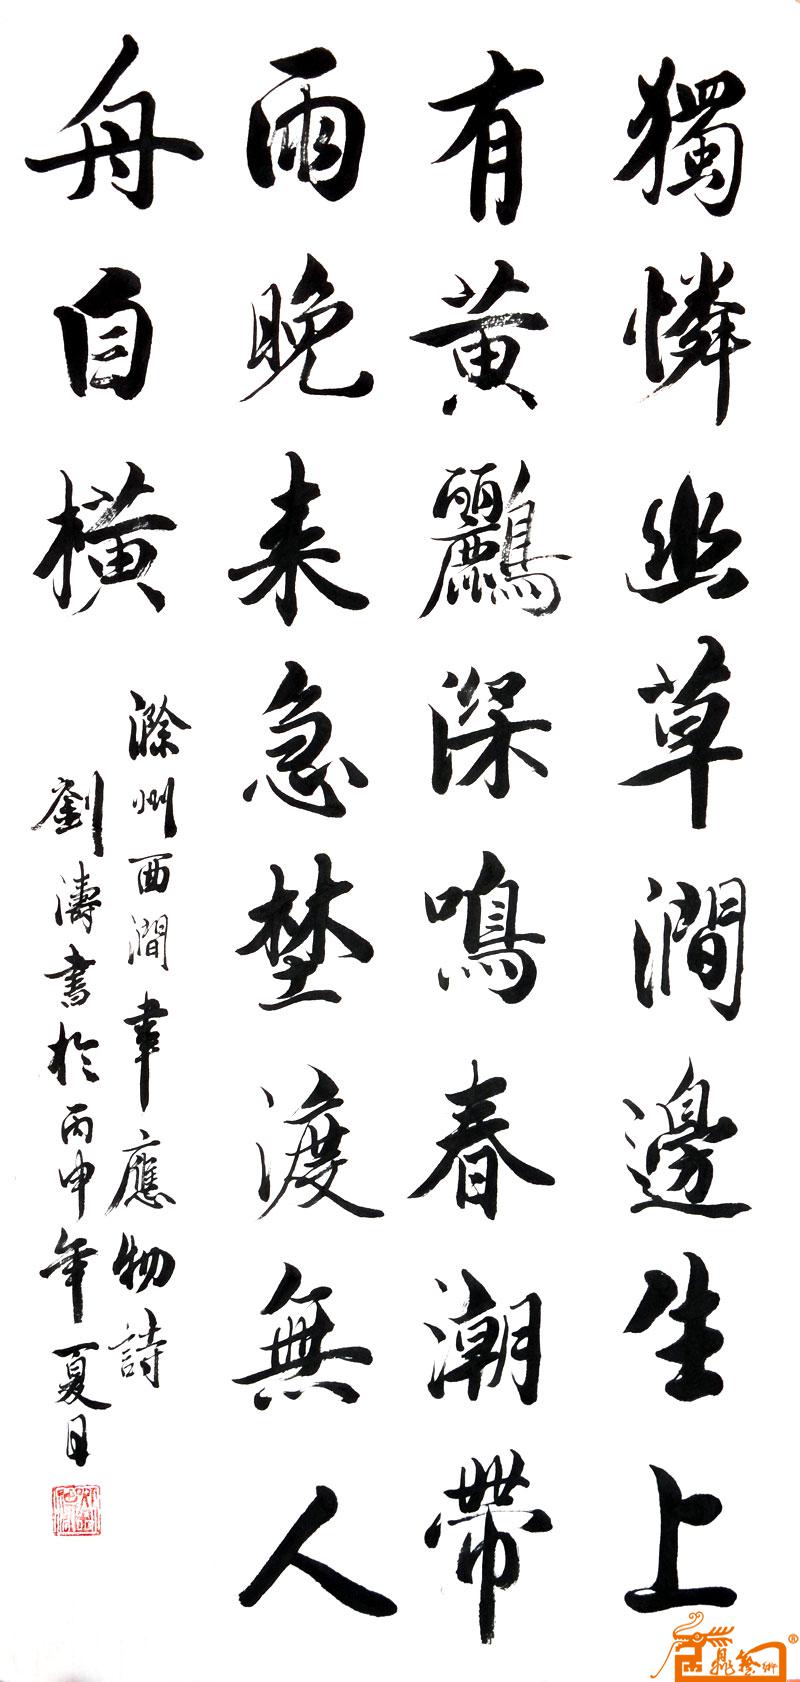 獨憐幽草澗邊生上
有黄鸝深鳴春潮帶
雨晚来急埜渡無人
舟自橫
滁州西澗韋應物詩
劉濤書於丙申年夏月